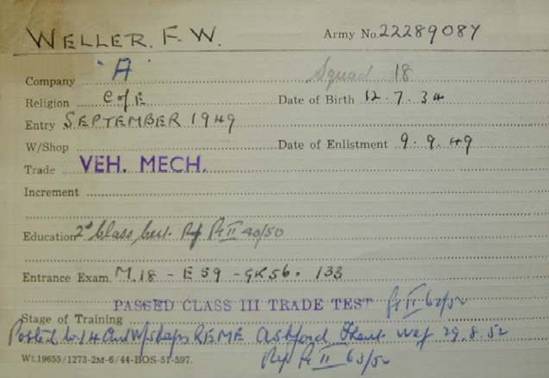 WELLER. F. W. Army No. 22289087
Company "A" Squad 18
Religion C of E Date of Birth 12.7.34
Entry SEPTEMBER 1949
W/Shop Date of Enlistment 9.9.49
Trade VEH. MECH.
Increment
Education 2nd Class Cert. Ref Pt II 40/50
Entrance Exam. M.18 - E59 - GK56. 133
PASSED CLASS III TRADE TEST Pt II 62/52
Stage of Training
Posted to 14 W/shops REME Ashford Kent wef 29.8.52
Ref Pt II 63/52
Wt.19655/1273-2M-6/44-BOS-51-597.